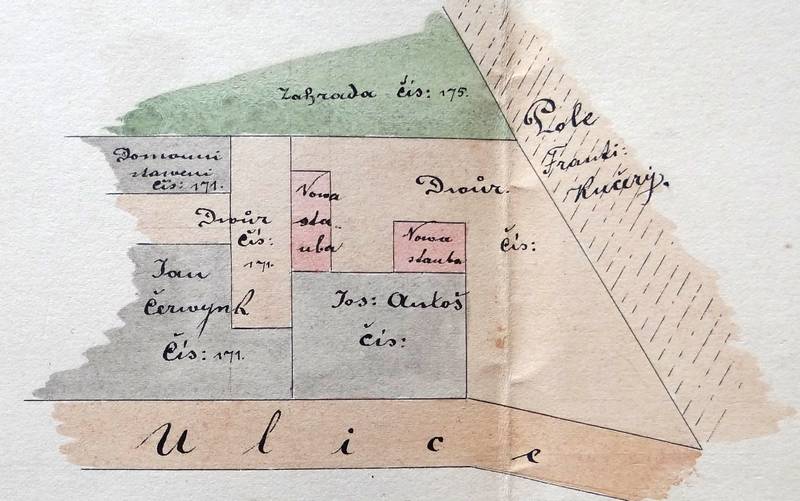 Zahrada čís: 175.
Pole
Franti:
Kučery.
Domowní
stawení
čís: 171.
Dwůr
čís:
171.
Nowa
sta..
uba
Dwůr.
čís:
Nowa
stauba
Jan
Čerwynk
Čís: 171.
Jos: Antoš
Čís:
Ulice